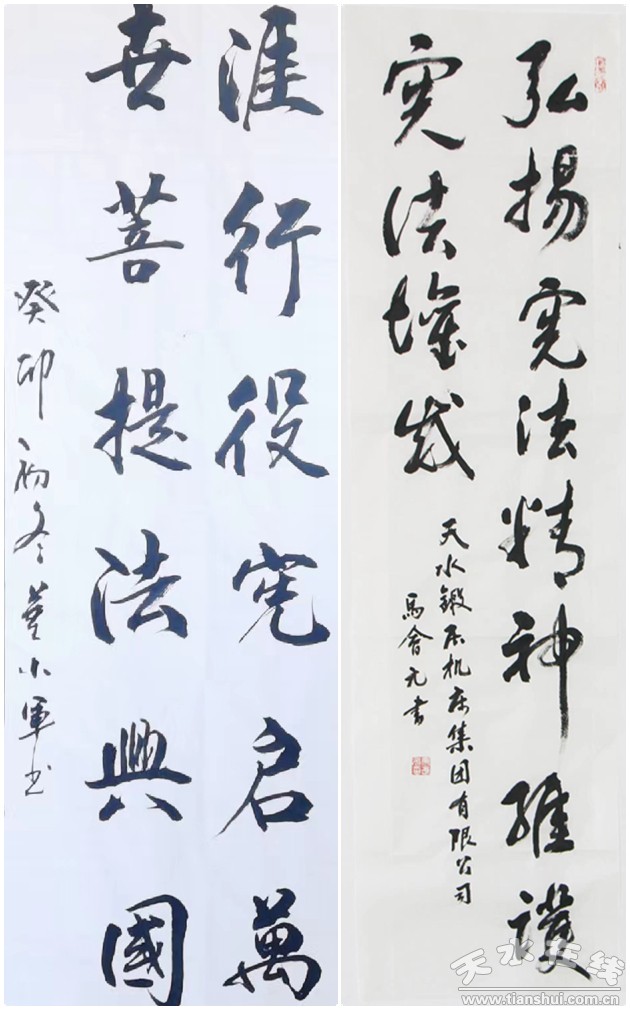 涯行役宪启萬
世菩提法興國
癸卯初冬董小軍书
弘揚宪法精神維護
宪法權威
天水鍛压机床集团有限公司
馬會元书
天水在线
www.tianshui.com.cn